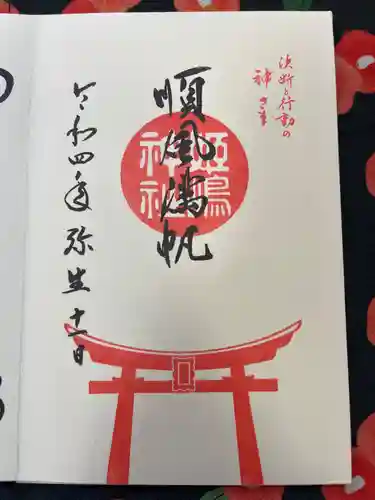 決断と行動の
神さま
順風満帆
姫嶋
神社
令和四年弥生十一日